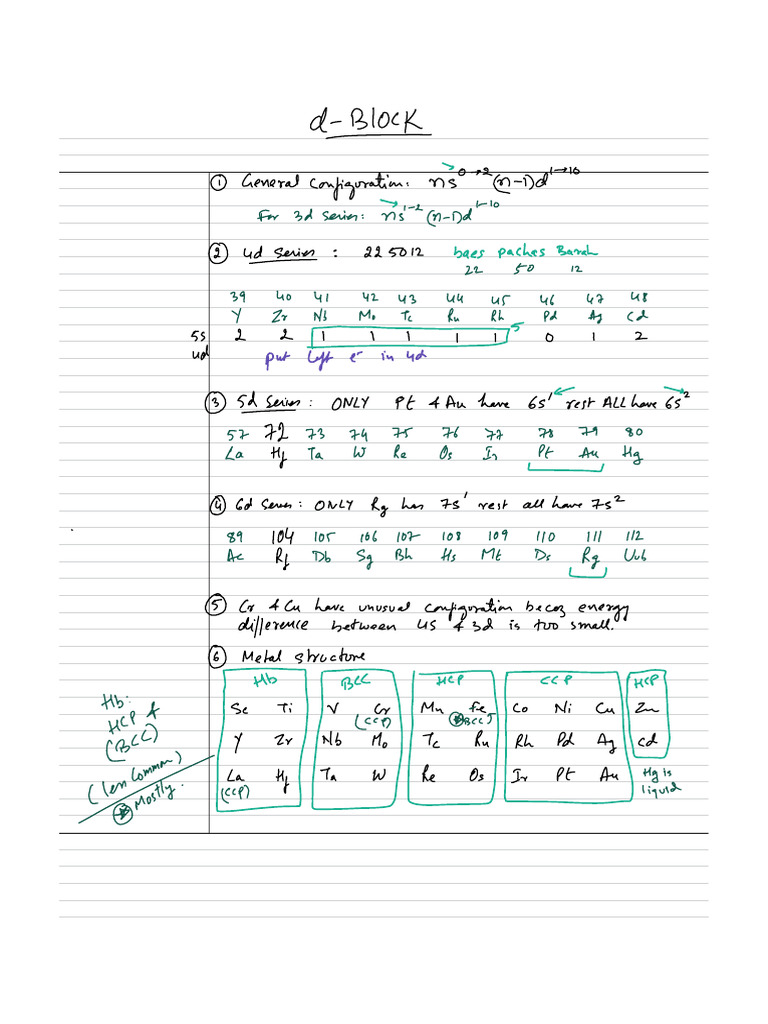 d-BLOCK
① General configuration: ns⁰→² (n-1)d¹→¹⁰
For 3d series: ns¹⁻² (n-1)d¹⁻¹⁰
② 4d series : 22 50 12 baes paches Barah
22 50 12
39 40 41 42 43 44 45 46 47 48
Y Zr Nb Mo Tc Ru Rh Pd Ag Cd
5s 2 2 1 1 1 1 1 5 0 1 2
4d put left e⁻ in 4d
③ 5d series: ONLY Pt & Au have 6s¹ rest ALL have 6s²
57 72 73 74 75 76 77 78 79 80
La Hf Ta W Re Os Ir Pt Au Hg
④ 6d series: ONLY Rg has 7s¹ rest all have 7s²
89 104 105 106 107 108 109 110 111 112
Ac Rf Db Sg Bh Hs Mt Ds Rg Uub
⑤ Cr & Cu have unusual configuration becoz energy
difference between 4s & 3d is too small.
⑥ Metal structure
Hb BCC HCP CCP HCP
Hb:
HCP &
(BCC)
(less common)
* Mostly.
Sc Ti V Cr Mn Fe Co Ni Cu Zn
(CCP) * BCC
Y Zr Nb Mo Tc Ru Rh Pd Ag Cd
La Hf Ta W Re Os Ir Pt Au Hg is
(CCP) liquid